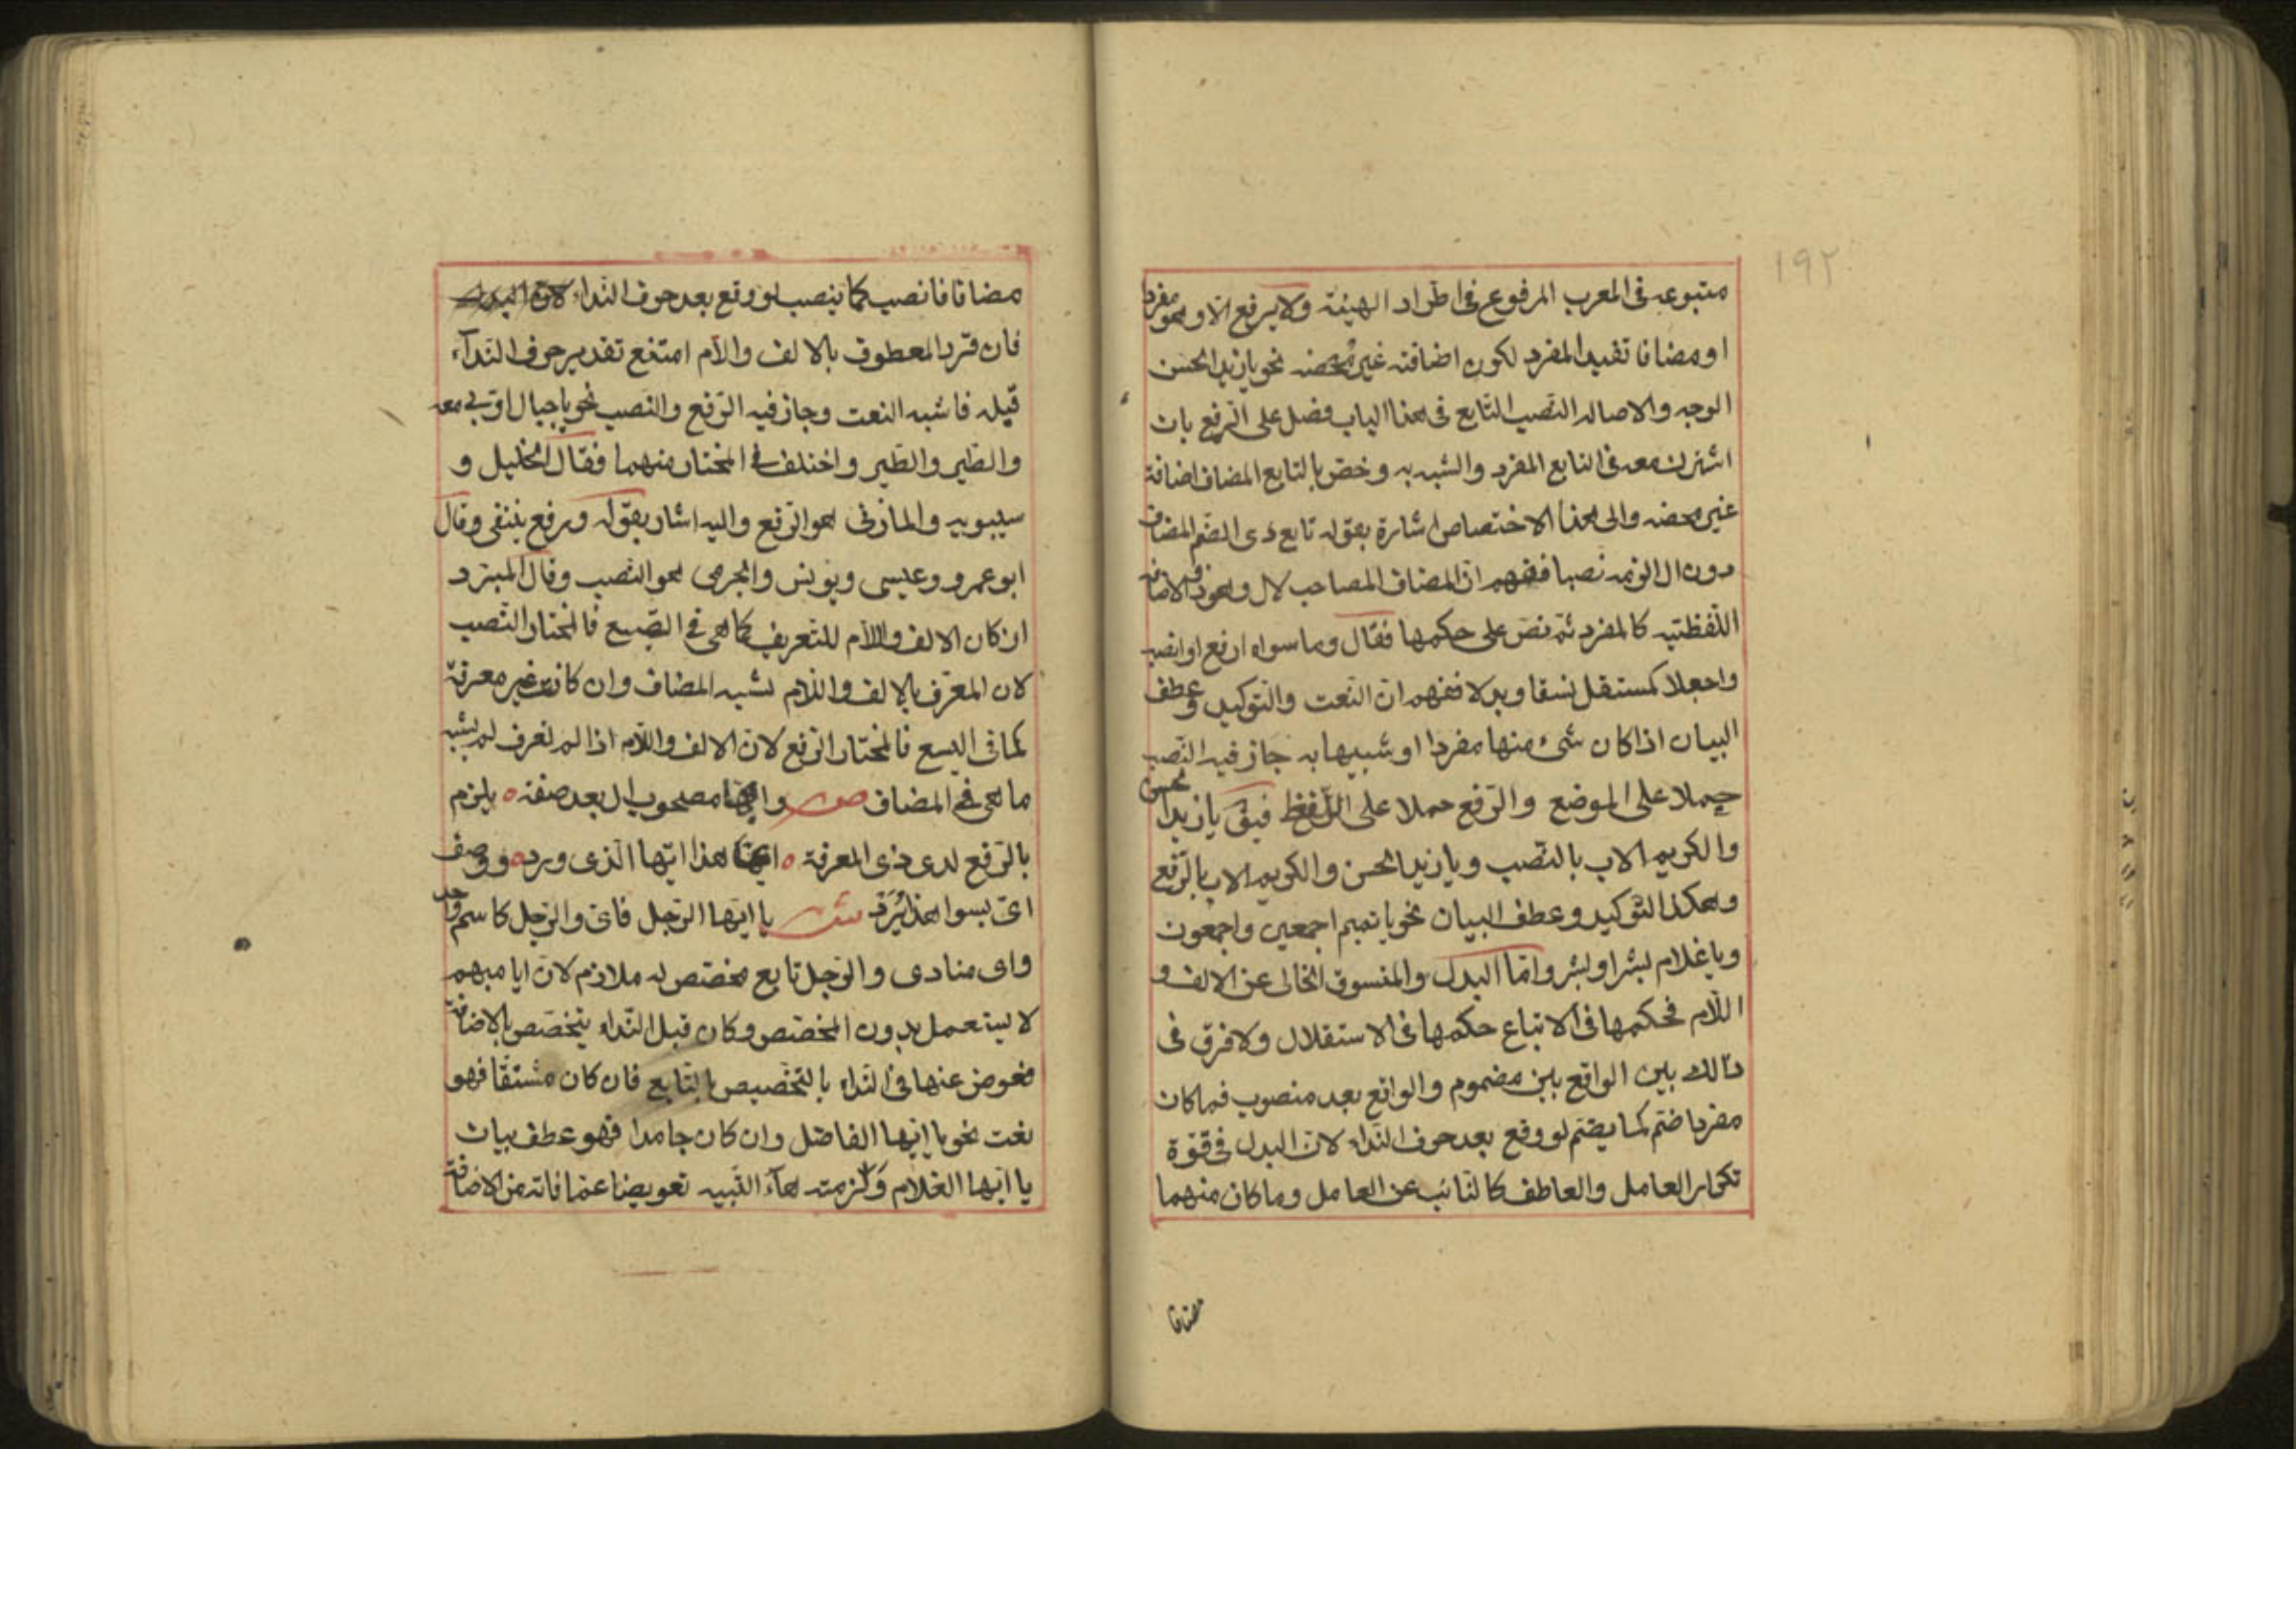 ١٩٢
متبوعه فى المعرب المرفوع فى اطراد الهيئة ولا يرفع الا وهو مفرد
او مضافا تفيد المفرد لكون اضافته غير محضه نحو يا زيد الحسن
الوجه والاصاله النصب التابع فى هذا الباب فضل على الرفع بان
اشترك معه فى التابع المفرد والشبه به وخص بالتابع المضاف اضافة
غير محضه والى هذا الاختصاص اشارة بقوله تابع ذى الضم المضاف
دون ال الزمه نصبا ففهم ان المضاف المصاحب لال وهو ذو الاضافه
اللفظيه كالمفرد ثم نص على حكمها فقال وما سواه ارفع او انصب
واجعلا كمستقل نسقا وبدلا ففهم ان النعت والتوكيد وعطف
البيان اذا كان شئ منها مفردا او شبيها به جاز فيه النصب
حملا على الموضع والرفع حملا على اللفظ فيق يا زيد الحسن
والكريم الاب بالنصب ويا زيد الحسن والكريم الاب بالرفع
وهكذا التوكيد وعطف البيان نحو يا تميم اجمعين واجمعون
ويا غلام بشرا وبشر واما البدل والمنسوق الخالى عن الالف و
اللام فحكمها فى الاتباع حكمها فى الاستقلال ولا فرق فى
ذالك بين الواقع بين مضموم والواقع بعد منصوب فما كان
مفردا ضم كما يضم لو وقع بعد حرف النداء لان البدل فى قوة
تكرار العامل والعاطف كالنائب عن العامل وما كان منهما
مضافا
مضافا فانصب كما ينصب لو وقع بعد حرف النداء لان البدل
فان قرن المعطوف بالالف واللام امتنع تقدير حرف النداء
قبله فاشبه النعت وجاز فيه الرفع والنصب نحو يا جبال اوبى معه
والطير والطير واختلف فى المختار منهما فقال الخليل و
سيبويه والمازنى هو الرفع واليه اشار بقوله ورفع ينتقى وقال
ابو عمرو وعيسى ويونس والجرمى هو النصب وقال المبرد
ان كان الالف واللام للتعريف كما هى فى الصبع فالمختار النصب
لان المعرف بالالف واللام لشبه المضاف وان كانت غير معرفة
كما فى اليسع فالمختار الرفع لان الالف واللام اذا لم تعرف لم يشبه
ما هى فى المضاف ص وايها مصحوب ال بعد صفة ٥ يلزم
بالرفع لدى ذى المعرفة ٥ ايها هذا ايها الذى ورد ٥ ووصف
اى بسوا هذا يرد ش يا ايها الرجل فاى والرجل كاسم واحد
واى منادى والرجل تابع مخصص له ملازم لان ايا مبهم
لا يستعمل بدون المخصص وكان قبل النداء يتخصص بالاضافة
فعوض عنها فى النداء بالتخصيص بالتابع فان كان مشتقا فهو
نعت نحو يا ايها الفاضل وان كان جامدا فهو عطف بيان
يا ايها الغلام ولزمت هاء التنبيه تعويضا عما فاته من الاضافة